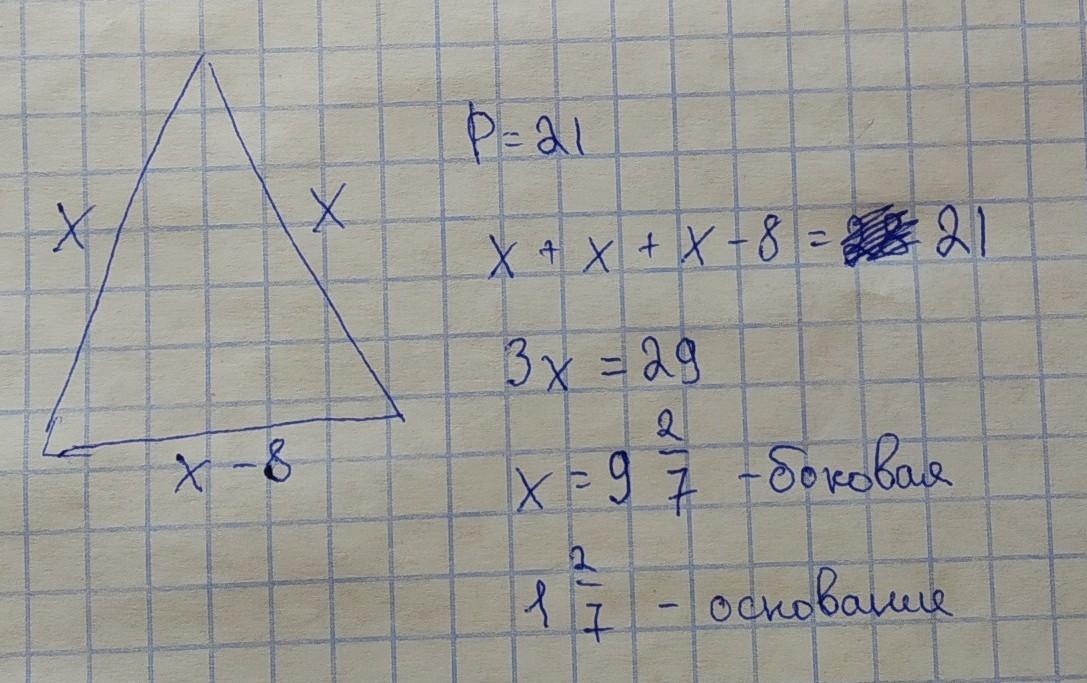 P = 21
x
x
x + x + x - 8 = 21
3x = 29
x - 8
x = 9 2/7 - боковая
1 2/7 - основание